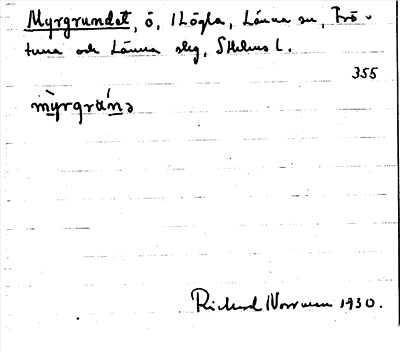 Myrgrundet, ö, i Lögla, Länna sn, Frö-
tuna och Länna slg, Sthlms l.
355
mỳrgrán̲ə
Richard Norrman 1930.